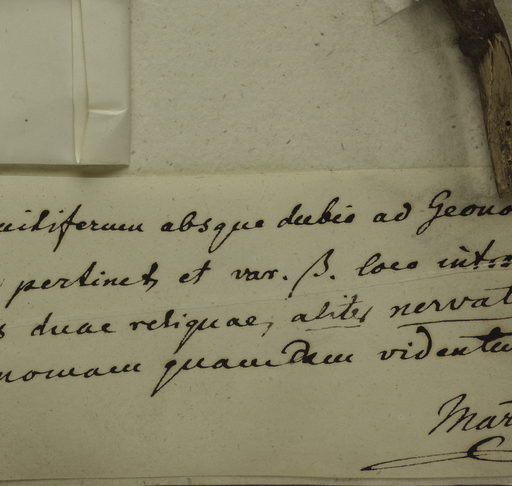 absque dubio ad Geono
pertinet et var. β. loco
duae reliquae, aliter nervat
nomam quamdam videntu
Mar